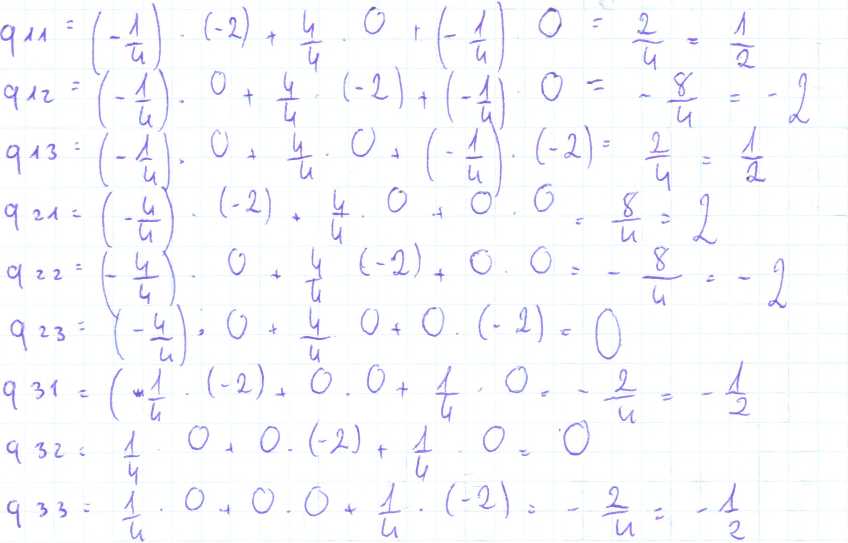 q11 = (-1/4) · (-2) + 4/4 · 0 + (-1/4) · 0 = 2/4 = 1/2
q12 = (-1/4) · 0 + 4/4 · (-2) + (-1/4) · 0 = -8/4 = -2
q13 = (-1/4) · 0 + 4/4 · 0 + (-1/4) · (-2) = 2/4 = 1/2
q21 = (-4/4) · (-2) + 4/4 · 0 + 0 · 0 = 8/4 = 2
q22 = (-4/4) · 0 + 4/4 (-2) + 0 · 0 = -8/4 = -2
q23 = (-4/4) · 0 + 4/4 0 + 0 · (-2) = 0
q31 = (1/4 · (-2) + 0 · 0 + 1/4 · 0 = -2/4 = -1/2
q32 = 1/4 · 0 + 0 · (-2) + 1/4 · 0 = 0
q33 = 1/4 · 0 + 0 · 0 + 1/4 · (-2) = -2/4 = -1/2